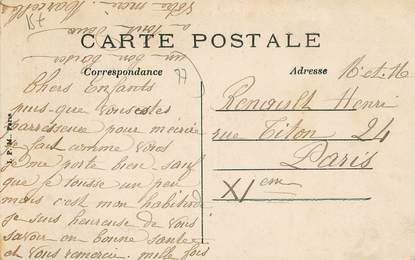 157
à tout deux
un bon
CARTE POSTALE
Correspondance
77
Adresse
Chers Enfants
puis-que vous etes
parressence pour m'ecrire
je fait comme vous
je me porte bien sauf
que je tousse un peu
mais c'est mon habitude
je suis heureuse de vous
savoir en bonne santé
et vous remercie mille fois
M. et M
Renoult Henri
rue Titon 24
Paris
XIem